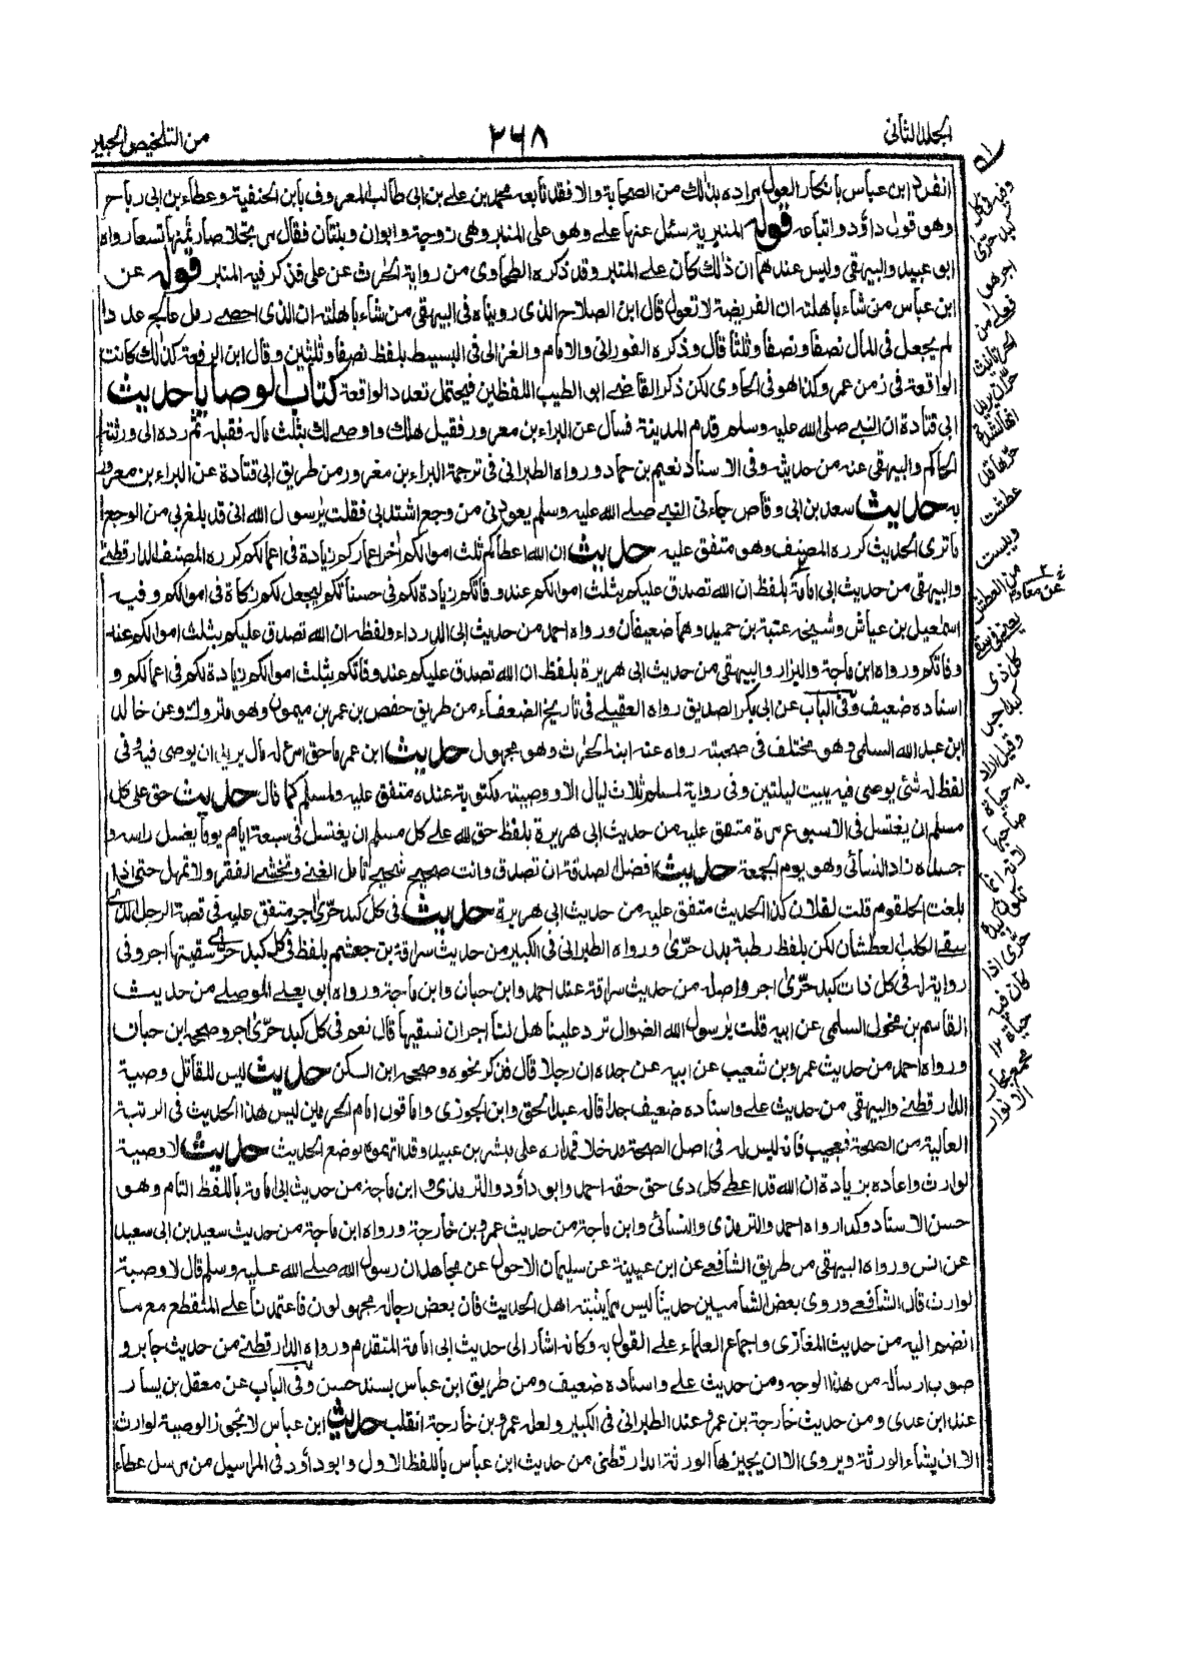 الجلد الثاني
٢٦٨
من التلخيص الحبير
انفرد ابن عباس بانكار العول مراده بذلك من الصحابة والا فقد تابعه محمد بن علے بن ابی طالب المعروف بابن الحنفية وعطاء بن ابی رباح
وهو قول داؤد واتباعه قوله المنبرية سئل عنها علے وهو علی المنبر وهی زوجة وابوان وبنتان فقال مرتجلا صار ثمنها تسعا رواه
ابو عبيد والبيهقی وليس عندهما ان ذلك كان علے المنبر وقد ذكره الطحاوی من رواية الحٰرث عن علی فذكر فيه المنبر قوله عن
ابن عباس من شاء باهلته ان الفريضة لا تعول قال ابن الصلاح الذی رويناه فی البيهقی من شاء باهلته ان الذی احصے رمل عالج عددا
لم يجعل فی المال نصفا ونصفا وثلثا قال وذكره الفورانی والامام والغزالی فی البسيط بلفظ نصفا وثلثين وقال ابن الرفعة كذلك كانت
الواقعة فی زمن عمر وكذا هو فی الحاوی لكن ذكر القاضے ابو الطيب اللفظين فيحتمل تعدد الواقعة كتاب الوصايا حديث
ابی قتادة ان النبے صلی الله عليه وسلم قدم المدينة فسأل عن البراء بن معرور فقيل هلك واوصے لك بثلث ماله فقبله ثم رده الی ورثته
الحاكم والبيهقی عنه من حديثه وفی الاسناد نعيم بن حماد ورواه الطبرانی فی ترجمة البراء بن معرور من طريق ابی قتادة عن البراء بن معرور
به حديث سعد بن ابی وقاص جاءنی النبے صلے الله عليه وسلم يعودنی من وجع اشتد بی فقلت يٰرسول الله انی قد بلغ بی من الوجع
ما تری الحديث كرره المصنف وهو متفق عليه حديث ان الله اعطاكم ثلث اموالكم اٰخر اعماركم زيادة فی اعمالكم كرره المصنف الدارقطنے
والبيهقی من حديث ابی امامة بلفظ ان الله تصدق عليكم بثلث اموالكم عند وفاتكم زيادة لكم فی حسناتكم ليجعل لكم زكاة فی اموالكم وفيه
اسمٰعيل بن عياش وشيخه عتبة بن حميد وهما ضعيفان ورواه احمد من حديث ابی الدرداء ولفظه ان الله تصدق عليكم بثلث اموالكم عند
وفاتكم ورواه ابن ماجة والبزار والبيهقی من حديث ابی هريرة بلفظ ان الله تصدق عليكم عند وفاتكم بثلث اموالكم زيادة لكم فی اعمالكم و
اسناده ضعيف وفی الباب عن ابی بكر الصديق رواه العقيلے فی تاريخ الضعفاء من طريق حفص بن عمر بن ميمون وهو متروك وعن خالد
ابن عبد الله السلمی وهو مختلف فی صحبته رواه عنه ابنه الحٰرث وهو مجهول حديث ابن عمر ما حق امرئ له مال يريد ان يوصی فيه وفی
لفظ له شئ يوصی فيه يبيت ليلتين وفی رواية لمسلم ثلاث ليال الا ووصيته مكتوبة عنده متفق عليه ولمسلم كما قال حديث حق علی كل
مسلم ان يغتسل فی الاسبوع مرة متفق عليه من حديث ابی هريرة بلفظ حق لله علے كل مسلم ان يغتسل فی سبعة ايام يوما يغسل راسه و
جسده زاد النسائی وهو يوم الجمعة حديث افضل الصدقة ان تصدق وانت صحيح شحيح تامل الغنے وتخشے الفقر ولا تمهل حتی اذا
بلغت الحلقوم قلت لفلان كذا الحديث متفق عليه من حديث ابی هريرة حديث فی كل كبد حرّیٰ اجر متفق عليه فی قصة الرجل الذے
سقے الكلب العطشان لكن بلفظ رطبة بدل حرّیٰ ورواه الطبرانی فی الكبير من حديث سراقة بن جعشم بلفظ فی كل كبد حرّے سقيتها اجر وفی
رواية له فی كل ذات كبد حرّیٰ اجر واصله من حديث سراقة عند احمد وابن حبان وابن ماجة ورواه ابو يعلے الموصلے من حديث
القاسم بن مخول السلمی عن ابيه قلت يٰرسول الله الضوال ترد علينا هل لنا اجر ان نسقيها قال نعم فی كل كبد حرّیٰ اجر وصححه ابن حبان
ورواه احمد من حديث عمرو بن شعيب عن ابيه عن جده ان رجلا قال فذكر نحوه وصححه ابن السكن حديث ليس للقاتل وصية
الدارقطنے والبيهقی من حديث علے واسناده ضعيف جدا قاله عبد الحق وابن الجوزی واما قول امام الحرمين ليس هذا الحديث فی الرتبة
العالية من الصحة فعجيب فانه ليس له فی اصل الصحة مدخل فمداره علی مبشر بن عبيد وقد اتهموه بوضع الحديث حديث لا وصية
لوارث واعاده بزيادة ان الله قد اعطے كل ذی حق حقه احمد وابو داؤد والترمذی وابن ماجة من حديث ابی امامة باللفظ التام وهو
حسن الاسناد وكذا رواه احمد والترمذی والنسائی وابن ماجة من حديث عمرو بن خارجة ورواه ابن ماجة من حديث سعيد بن ابی سعيد
عن انس ورواه البيهقی من طريق الشافعے عن ابن عيينة عن سليمان الاحول عن مجاهد ان رسول الله صلے الله عليه وسلم قال لا وصية
لوارث قال الشافعے وروی بعض الشاميين حديثا ليس مما يثبته اهل الحديث فان بعض رجاله مجهولون فاعتمدنا علے المنقطع مع ما
انضم اليه من حديث المغازی واجماع العلماء علے القول به وكانه اشار الی حديث ابی امامة المتقدم ورواه الدارقطنے من حديث جابر و
صوب ارساله من هذا الوجه ومن حديث علے واسناده ضعيف ومن طريق ابن عباس بسند حسن وفی الباب عن معقل بن يسار
عند ابن عدی ومن حديث خارجة بن عمرو عند الطبرانی فی الكبير ولعله عمرو بن خارجة انقلب حديث ابن عباس لا تجوز الوصية لوارث
الا ان يشاء الورثة ويروی الا ان يجيزها الورثة الدارقطنی من حديث ابن عباس باللفظ الاول وابو داؤد فی المراسيل من مرسل عطاء
وفيه فی كل
كبد حرّی
اجر
فعلے من
الحر تانيث
حرّان يريد
انها لشدة
حرها قد
عطشت
ويبست
من العطش
يعنے فی سقے
كل ذی
كبد اجر
وقيل اراد
به حياة
صاحبها
لانه انما
تكون كبده
حرّی اذا
كان فيه
حياة ١٢
مجمع بحار
الانوار